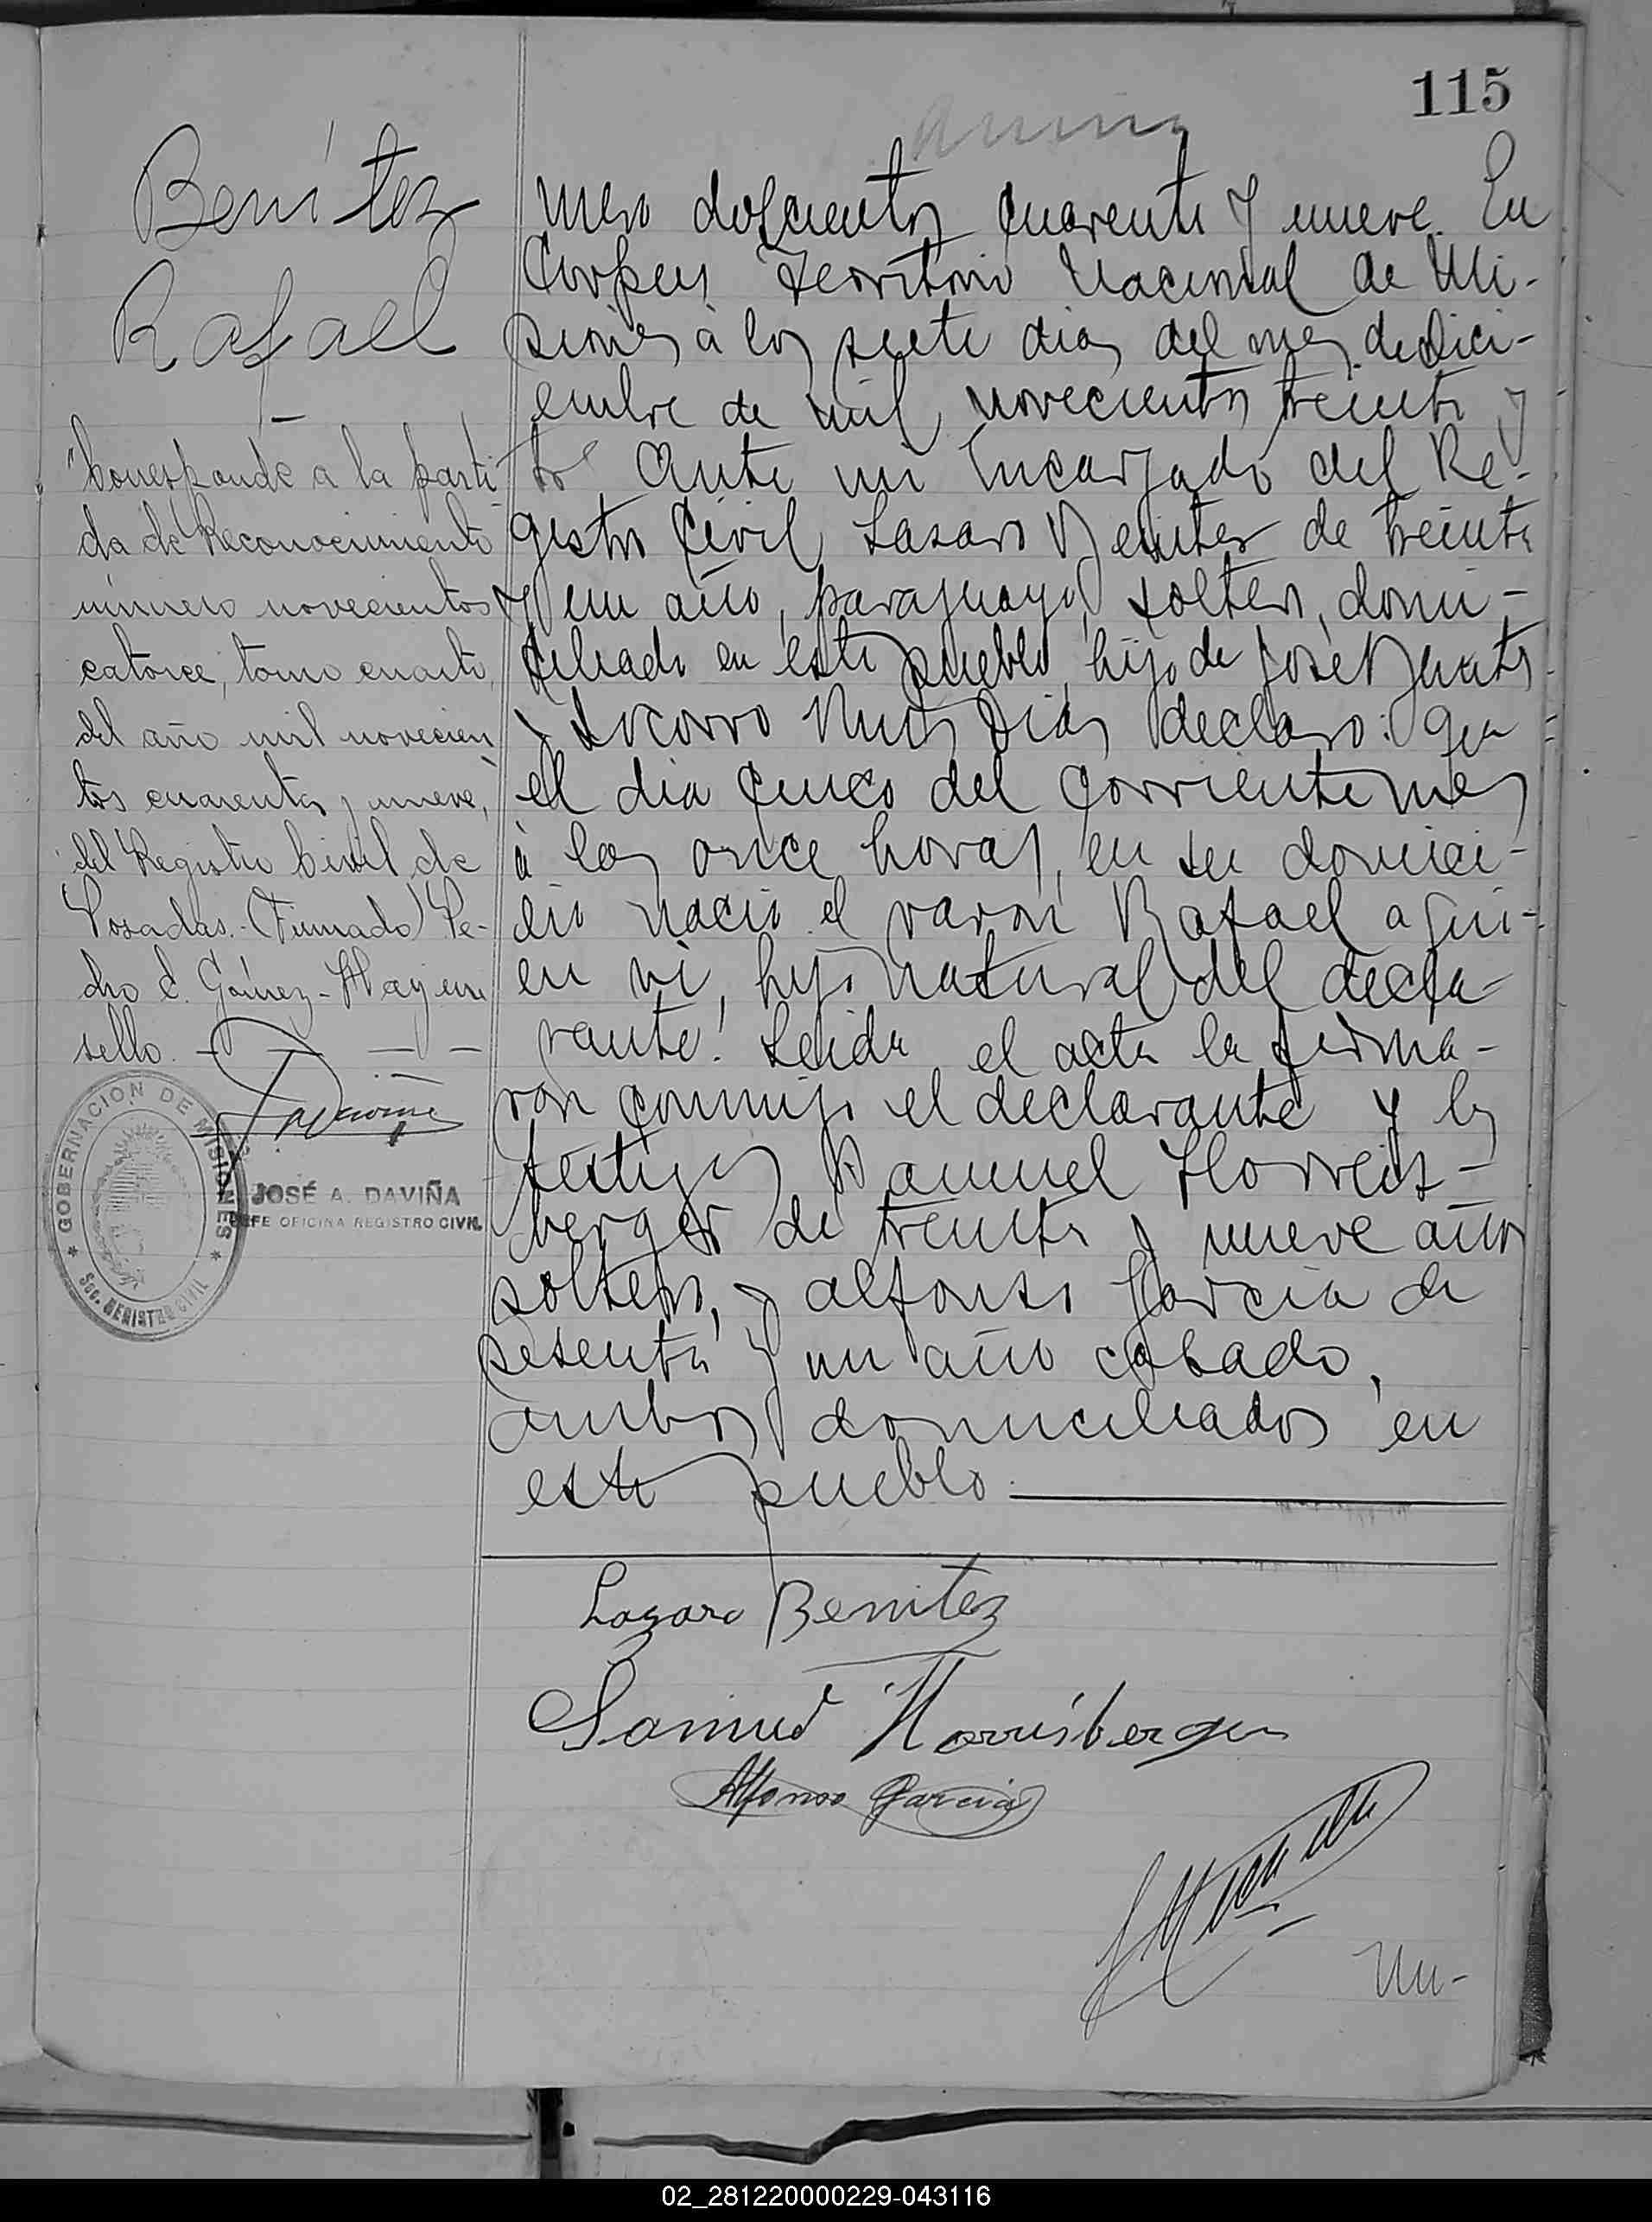 115
Benítez
Rafael
"Corresponde a la parti
da de Reconocimiento
número novecientos
catorce, tomo cuarto,
del año mil novecien
tos cuarenta y nueve,
del Registro Civil de
Posadas.-(Firmado) Pe-
dro C. Gómez- Hay un
sello.
GOBERNACION DE MISIONES
Sec. REGISTRO CIVIL
JOSÉ A. DAVIÑA
JEFE OFICINA REGISTRO CIVIL
mero doscientos cuarenta y nueve. En
Corpus Territorio Nacional de Mi-
siones à los siete dias del mes de Dici-
embre de mil novecientos treinta y
Ante mi Encargado del Re-
gistro Civil Lasaro Benites de treinta
y un año, paraguayo, soltero, domi-
ciliado en este pueblo, hijo de José Benites
y Socorro declaro: que
el dia cinco del corriente mes
à las once horas, en su domici-
lio nacio el varon Rafael a qui-
en vi, hijo natural del decla-
rante. Leida el acta la firma-
ron conmigo el declarante y los
testigos Samuel Horris-
berger de treinta y nueve años
soltero, y Alfonso Garcia de
sesenta y un año casado,
ambos domiciliados en
este pueblo
Lazaro Benitez
Samuel Horrisberger
Alfonso Garcia
Nu-
02_281220000229-043116